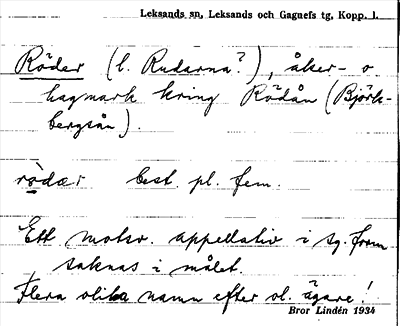 Leksands sn, Leksands och Gagnefs tg, Kopp. l.
Röder (l. Rudarna?), åker- o
hagmark kring Rödån (Björk-
bergsån).
rö̀dær best. pl. fem.
Ett motsv. appellativ i sg. form
saknas i målet.
Flera olika namn efter ol. ägare!
Bror Lindén 1934